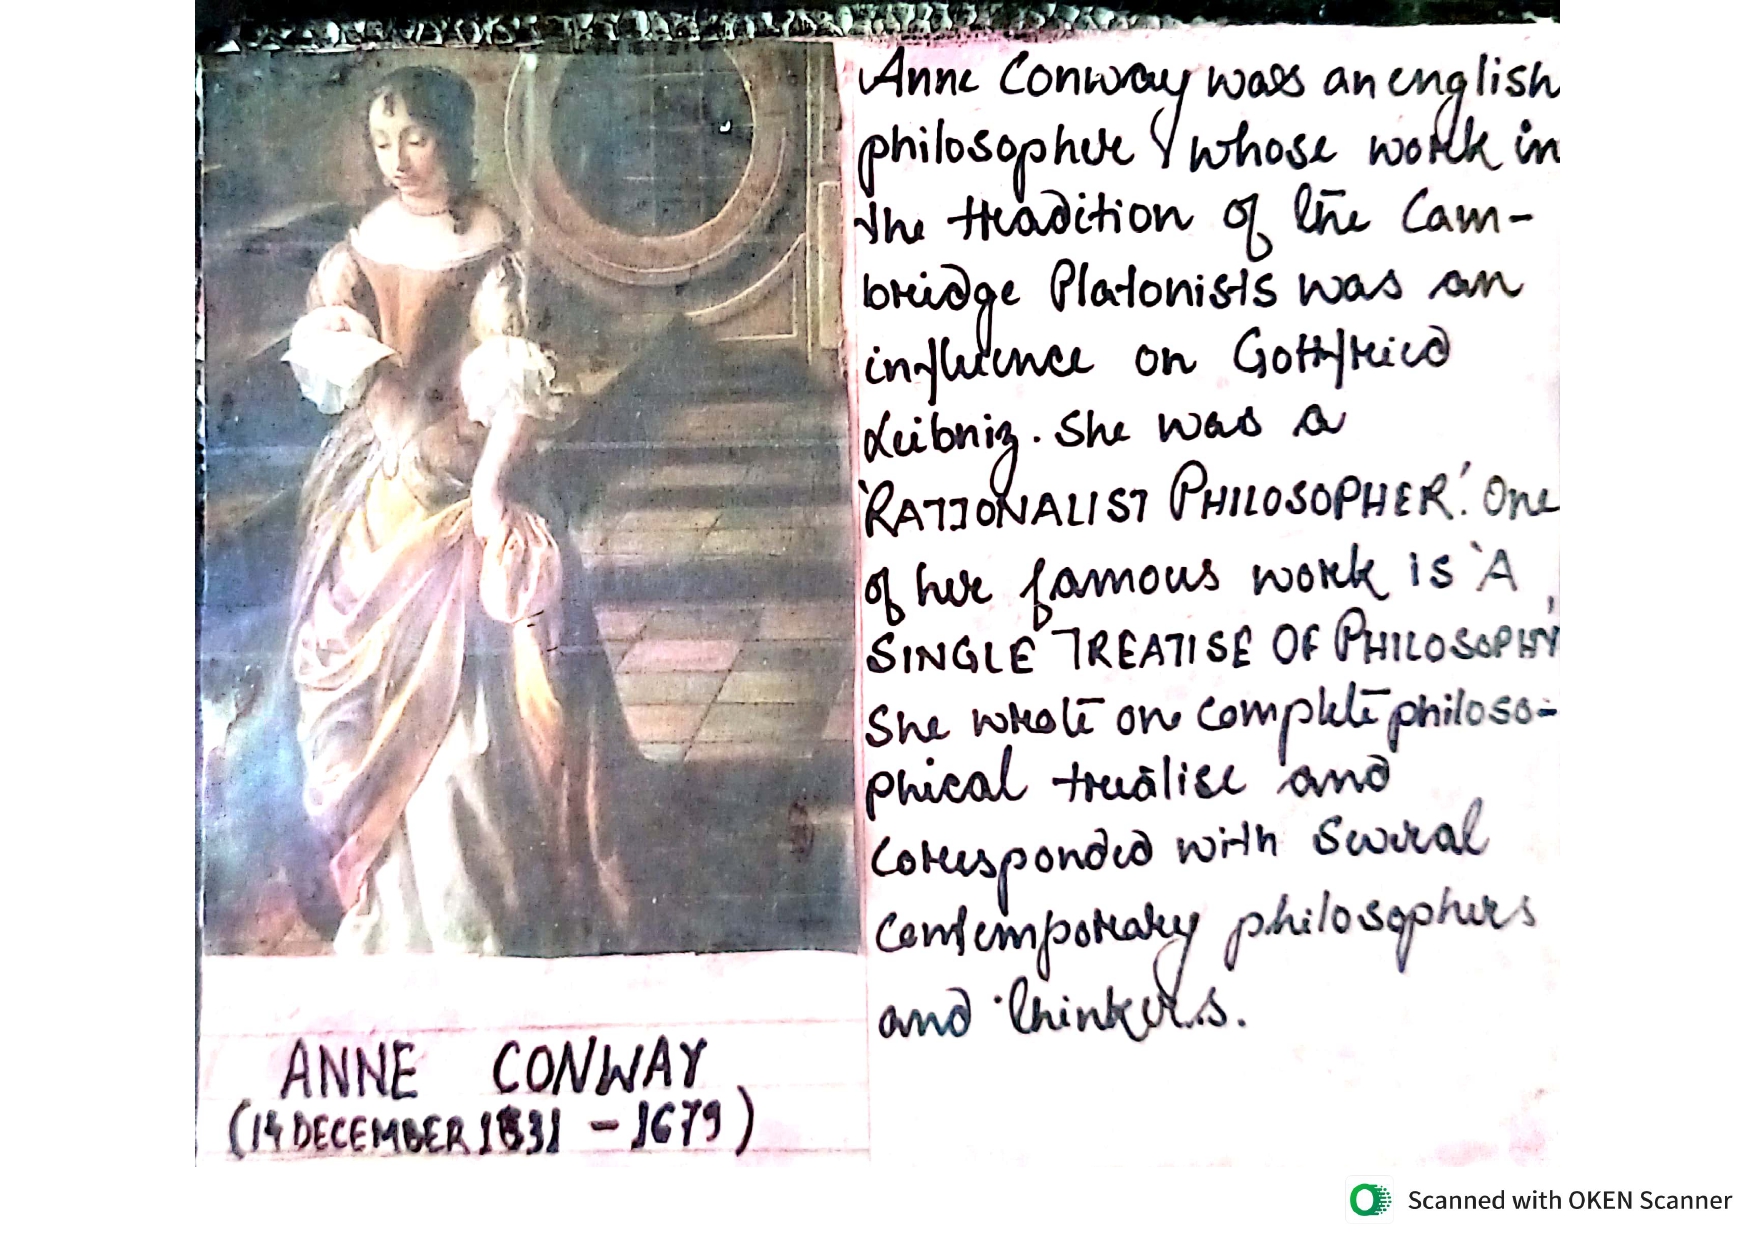 Anne Conway was an english
philosopher whose work in
the tradition of the Cam-
bridge Platonists was an
influence on Gottfried
Leibniz. She was a
'RATIONALIST PHILOSOPHER'. One
of her famous work is 'A
SINGLE TREATISE OF PHILOSOPHY'
She wrote on complete philoso-
phical treatise and
corresponded with several
contemporary philosophers
and thinkers.
ANNE CONWAY
(14 DECEMBER 1631 - 1679)
Scanned with OKEN Scanner